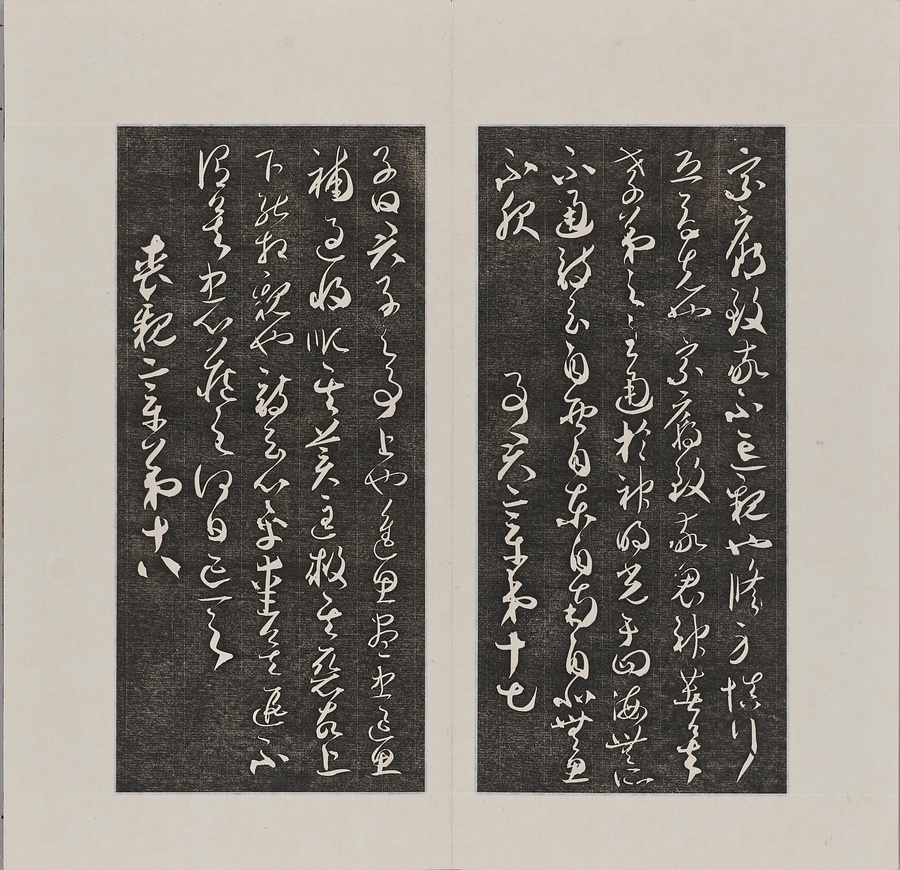 宗廟致敬不忘親也脩身慎行
恐辱先也宗廟致敬鬼神著矣
孝弟之至通於神明光于四海無所
不通詩云自西自東自南自北無思
不服 事君章第十七
子曰君子之事上也進思盡忠退思
補過將順其美匡救其惡故上
下能相親也詩云心乎愛矣遐不
謂矣忠心藏之何日忘之
喪親章第十八